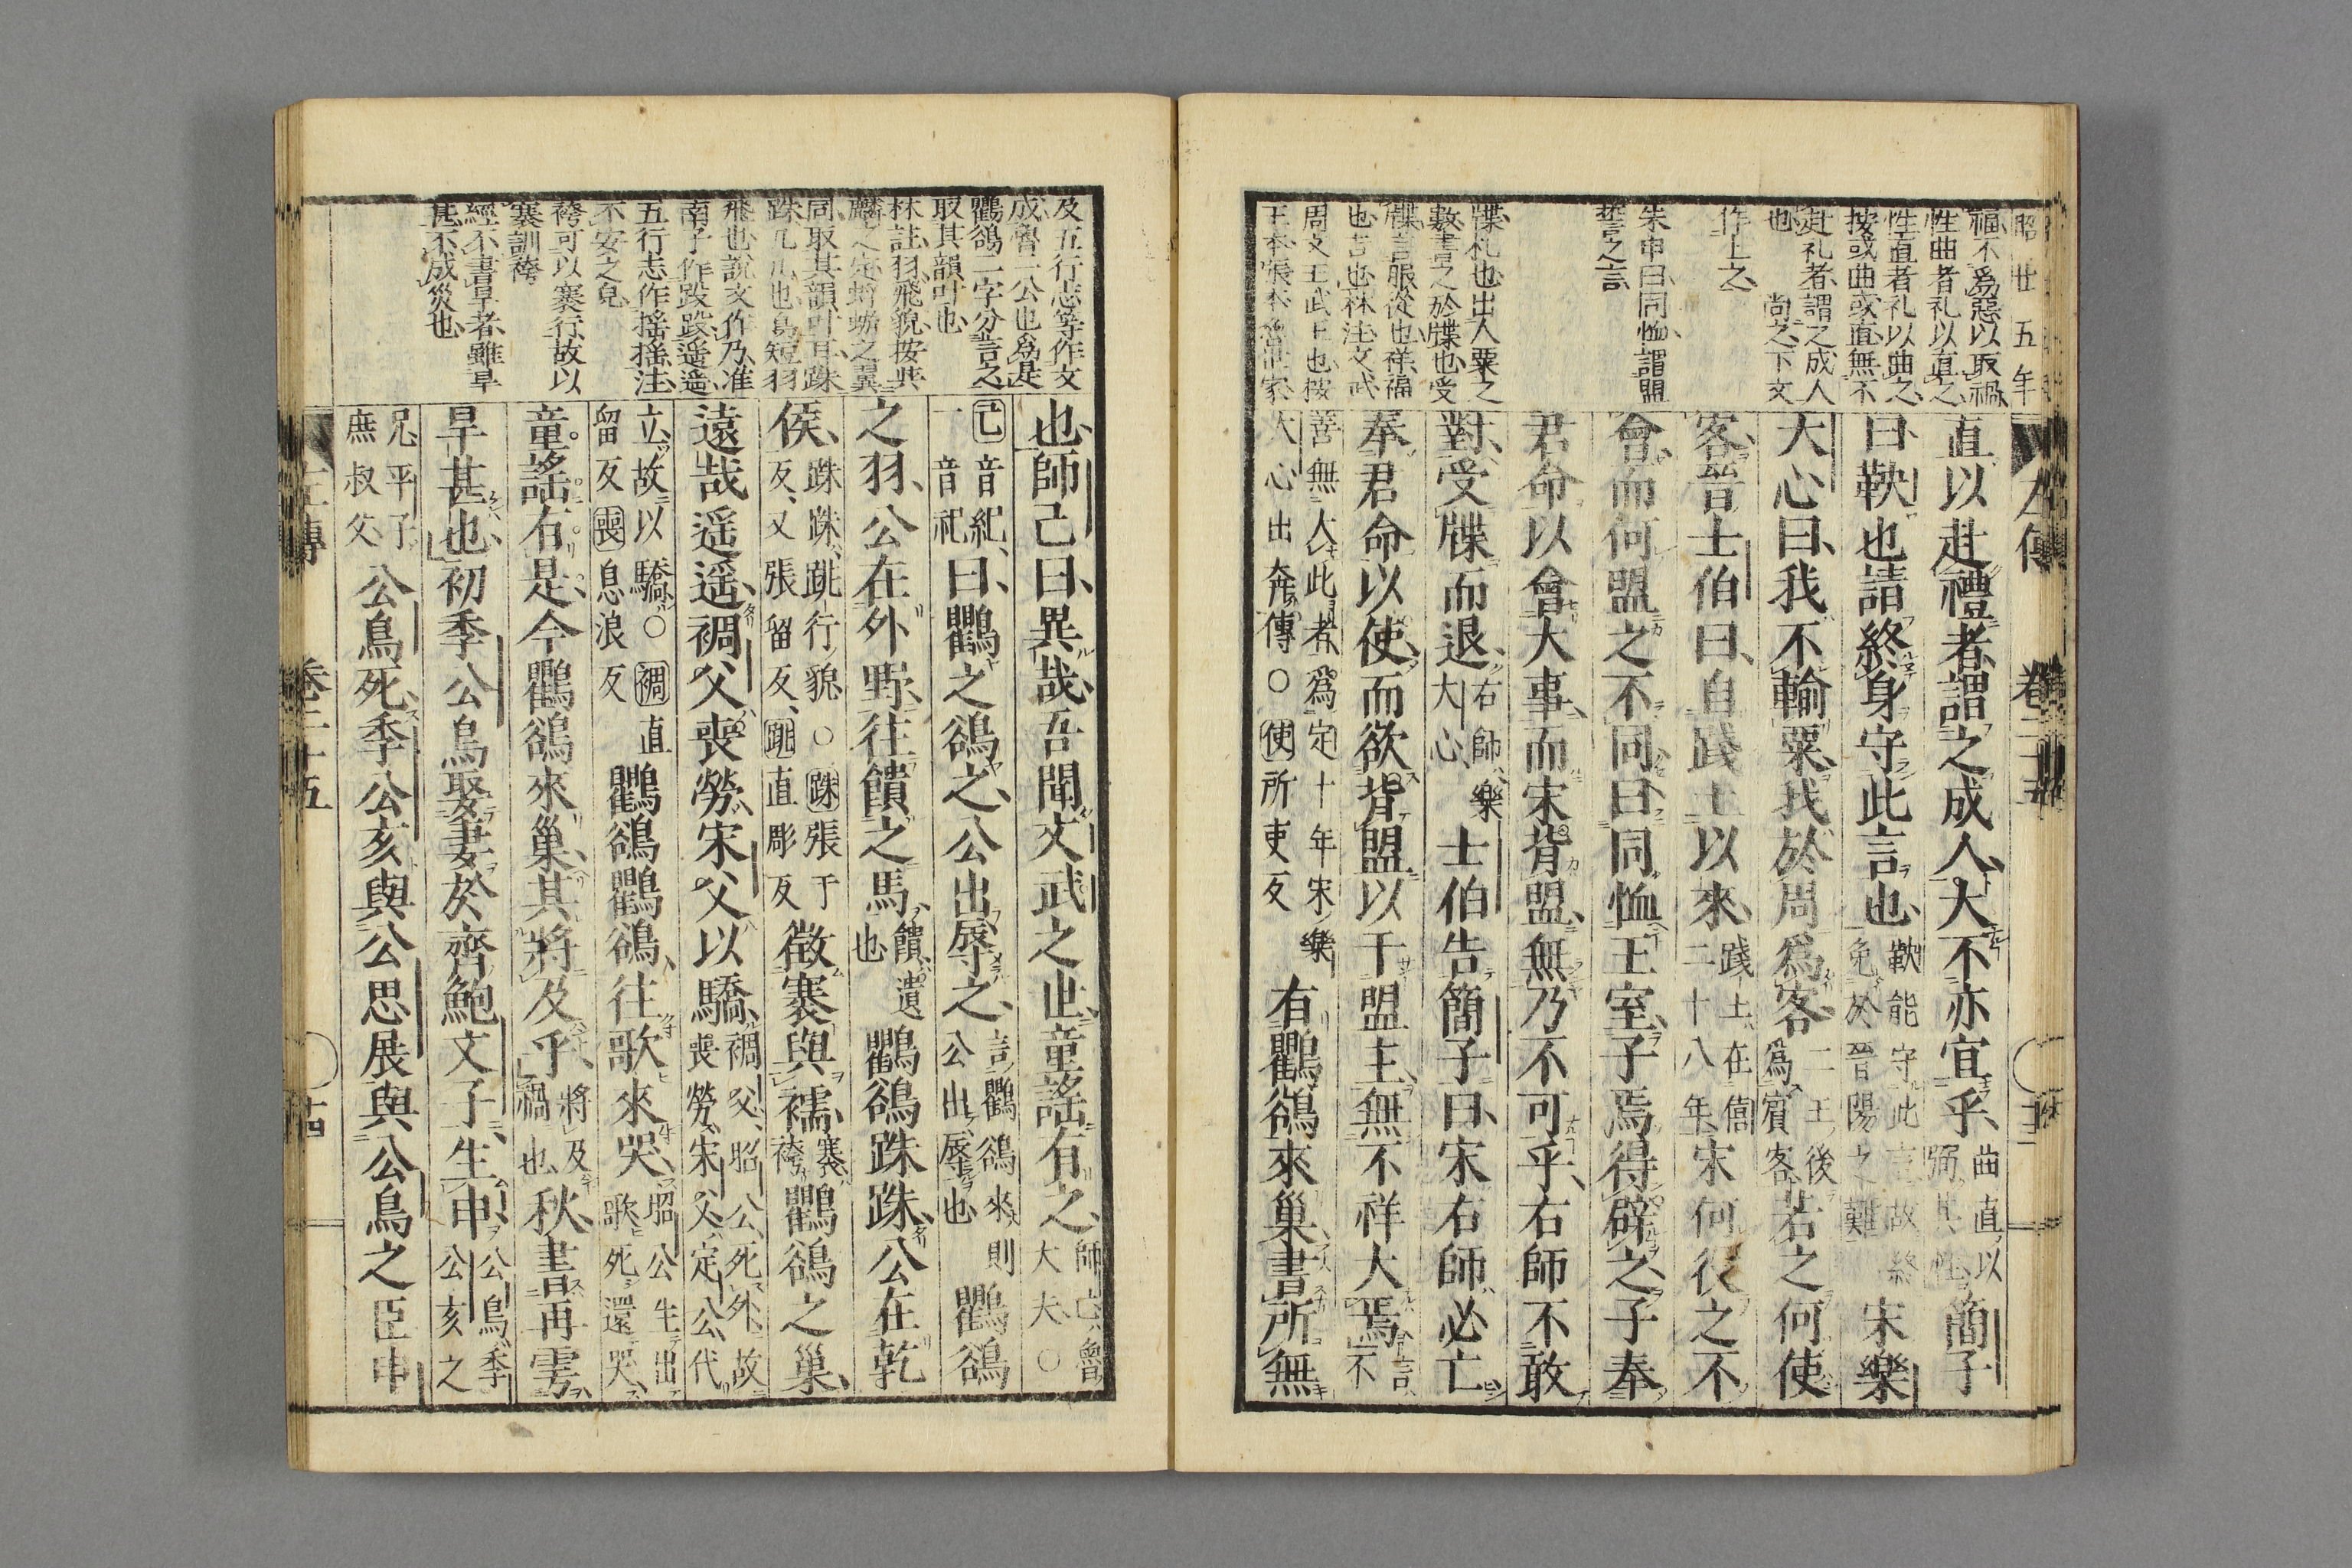 昭廿五年
福不爲惡以取禍
性曲者礼以直之
性直者礼以曲之
按或曲或直無不
赴礼者謂之成人
也 尚之下文
作上之
朱申曰同恤謂盟
誓之言
牒札也出人粟之
數書之於牒也受
牒言服從也祥福
也吉也林注文武
周文王武王也按
左傳 卷二十五
直以赴禮者謂之成人大不亦宜乎曲直以弼其性簡子
曰鞅也請終身守此言也鞅能守此言故終免於晉陽之難宋樂
大心曰我不輸粟我於周爲客二王後爲賓客若之何使
客晉士伯曰自踐土以來踐土在僖二十八年宋何役之不
會而何盟之不同曰同恤王室子焉得辟之子奉
君命以會大事而宋背盟無乃不可乎右師不敢
對受牒而退右師樂大心士伯告簡子曰宋右師必亡
奉君命以使而欲背盟以干盟主無不祥大焉言不
善無大此者爲定十年宋樂大心出奔傳○使所吏反有鸜鵒來巢書所無
及五行志等作文
成魯二公也爲是
鸜鵒二字分言之
取其韻叶也
林註羽飛貌按共
同取其韻叶耳跦
飛也説文作乃准
南子作跤跤遥遥
五行志作揺揺注
不安之皃
袴可以褰行故以
褰訓袴
經不書旱者雖旱
甚不成災也
也師己曰異哉吾聞文武之世童謠有之師己魯大夫○
己音紀一音祀曰鸜之鵒之公出辱之言鸜鵒來則公出辱也鸜鵒
之羽公在外野往饋之馬饋遺也鸜鵒跦跦公在乾
侯跦跦跳行貌○跦張于反又張留反跳直彫反徵褰與襦褰袴鸜鵒之巢
遠哉遥遥裯父喪勞宋父以驕裯父昭公死外故喪勞宋父定公代
立故以驕○裯直留反喪息浪反鸜鵒鸜鵒往歌來哭昭公生出歌死還哭
童謠有是今鸜鵒來巢其將及乎將及禍也秋書再雩
旱甚也初季公鳥娶妻於齊鮑文子生申公鳥季公亥之
兄平子庶叔父公鳥死季公亥與公思展與公鳥之臣申
左傳 卷二十五 十四